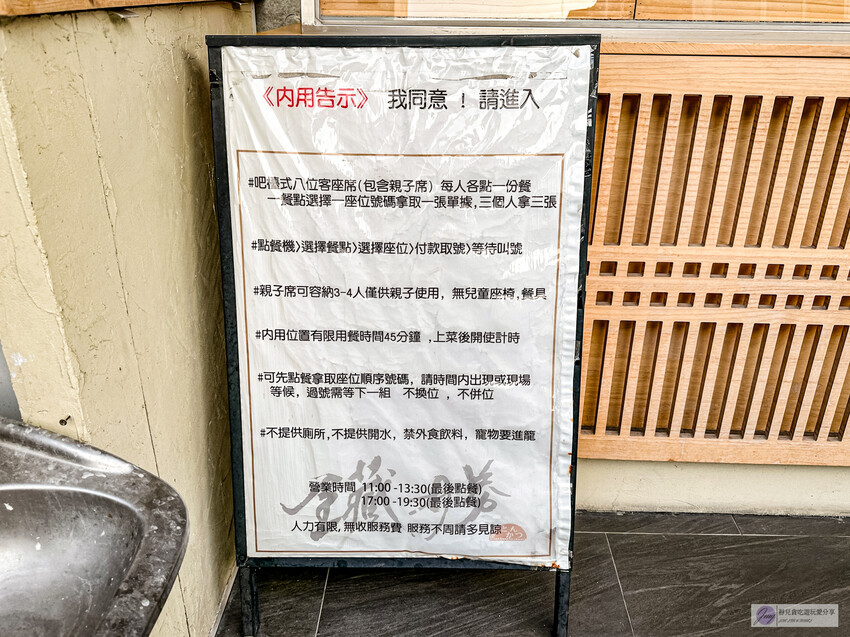 《內用告示》 我同意 ! 請進入
#吧檯式八位客座席(包含親子席) 每人各點一份餐
一餐點選擇一座位號碼拿取一張單據,三個人拿三張
#點餐機>選擇餐點>選擇座位>付款取號>等待叫號
#親子席可容納3-4人僅供親子使用，無兒童座椅,餐具
#內用位置有限用餐時間45分鐘 ,上菜後開使計時
#可先點餐拿取座位順序號碼，請時間內出現或現場
等候，過號需等下一組 不換位 ，不併位
#不提供廁所,不提供開水，禁外食飲料，寵物要進籠
營業時間 11:00 -13:30(最後點餐)
17:00 -19:30(最後點餐)
人力有限,無收服務費 服務不周請多見諒
とんかつ
靜兒貪吃遊玩愛分享